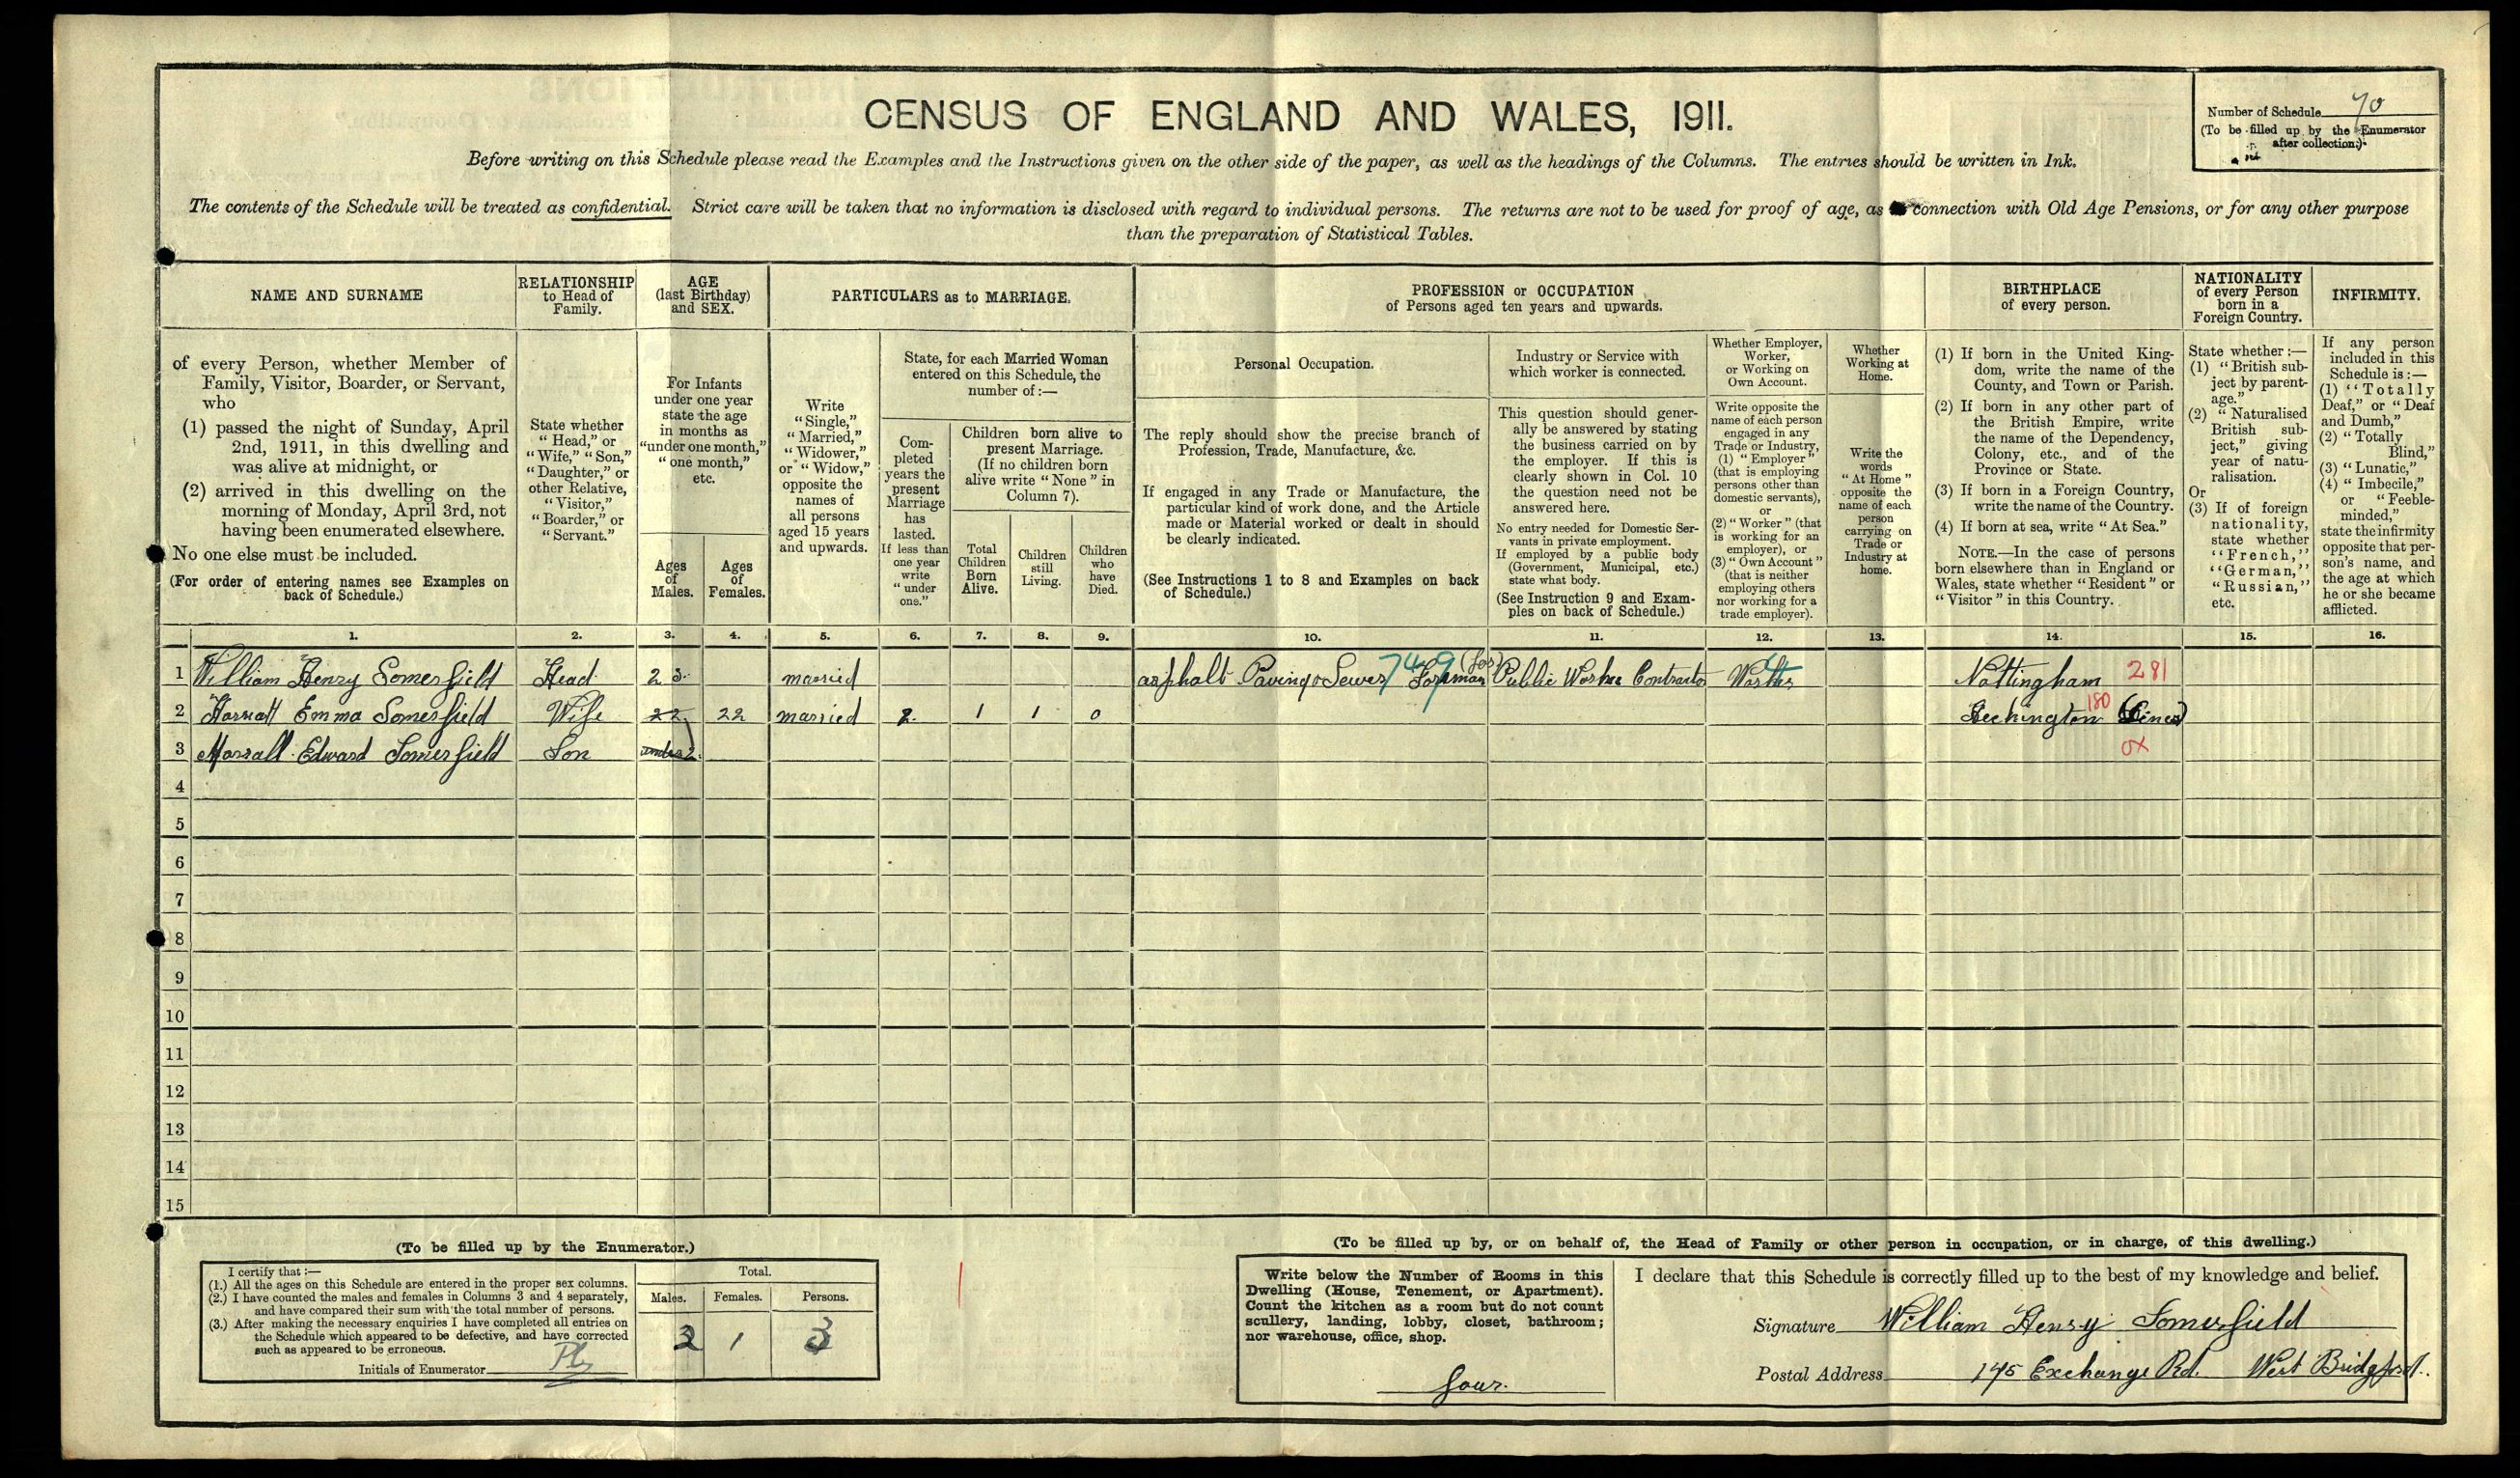 CENSUS OF ENGLAND AND WALES, 1911.
Number of Schedule 70
(To be filled up by the Enumerator
after collection.)
Before writing on this Schedule please read the Examples and the Instructions given on the other side of the paper, as well as the headings of the Columns. The entries should be written in Ink.
The contents of the Schedule will be treated as confidential. Strict care will be taken that no information is disclosed with regard to individual persons. The returns are not to be used for proof of age, as connection with Old Age Pensions, or for any other purpose
than the preparation of Statistical Tables.
NAME AND SURNAME
of every Person, whether Member of
Family, Visitor, Boarder, or Servant,
who
(1) passed the night of Sunday, April
2nd, 1911, in this dwelling and
was alive at midnight, or
(2) arrived in this dwelling on the
morning of Monday, April 3rd, not
having been enumerated elsewhere.
No one else must be included.
(For order of entering names see Examples on
back of Schedule.)
RELATIONSHIP
to Head of
Family.
State whether
"Head," or
"Wife," "Son,"
"Daughter," or
other Relative,
"Visitor,"
"Boarder," or
"Servant."
AGE
(last Birthday)
and SEX.
For Infants
under one year
state the age
in months as
"under one month,"
"one month,"
etc.
Ages
of
Males.
Ages
of
Females.
PARTICULARS as to MARRIAGE.
Write
"Single,"
"Married,"
"Widower,"
or "Widow,"
opposite the
names of
all persons
aged 15 years
and upwards.
State, for each Married Woman
entered on this Schedule, the
number of:—
Com-
pleted
years the
present
Marriage
has
lasted.
If less than
one year
write
"under
one."
Children born alive to
present Marriage.
(If no children born
alive write "None" in
Column 7).
Total
Children
Born
Alive.
Children
still
Living.
Children
who
have
Died.
PROFESSION or OCCUPATION
of Persons aged ten years and upwards.
Personal Occupation.
The reply should show the precise branch of
Profession, Trade, Manufacture, &c.
If engaged in any Trade or Manufacture, the
particular kind of work done, and the Article
made or Material worked or dealt in should
be clearly indicated.
(See Instructions 1 to 8 and Examples on back
of Schedule.)
Industry or Service with
which worker is connected.
This question should gener-
ally be answered by stating
the business carried on by
the employer. If this is
clearly shown in Col. 10
the question need not be
answered here.
No entry needed for Domestic Ser-
vants in private employment.
If employed by a public body
(Government, Municipal, etc.)
state what body.
(See Instruction 9 and Exam-
ples on back of Schedule.)
Whether Employer,
Worker,
or Working on
Own Account.
Write opposite the
name of each person
engaged in any
Trade or Industry,
(1) "Employer"
(that is employing
persons other than
domestic servants),
or
(2) "Worker" (that
is working for an
employer), or
(3) "Own Account"
(that is neither
employing others
nor working for a
trade employer).
Whether
Working at
Home.
Write the
words
"At Home"
opposite the
name of each
person
carrying on
Trade or
Industry at
home.
BIRTHPLACE
of every person.
(1) If born in the United King-
dom, write the name of the
County, and Town or Parish.
(2) If born in any other part of
the British Empire, write
the name of the Dependency,
Colony, etc., and of the
Province or State.
(3) If born in a Foreign Country,
write the name of the Country.
(4) If born at sea, write "At Sea."
NOTE.—In the case of persons
born elsewhere than in England or
Wales, state whether "Resident" or
"Visitor" in this Country.
NATIONALITY
of every Person
born in a
Foreign Country.
State whether:—
(1) "British sub-
ject by parent-
age."
(2) "Naturalised
British sub-
ject," giving
year of natu-
ralisation.
Or
(3) If of foreign
nationality,
state whether
"French,"
"German,"
"Russian,"
etc.
INFIRMITY.
If any person
included in this
Schedule is:—
(1) "Totally
Deaf," or "Deaf
and Dumb,"
(2) "Totally
Blind,"
(3) "Lunatic,"
(4) "Imbecile,"
or "Feeble-
minded,"
state the infirmity
opposite that per-
son's name, and
the age at which
he or she became
afflicted.
1. 2. 3. 4. 5. 6. 7. 8. 9. 10. 11. 12. 13. 14. 15. 16.
1 William Henry Somerfield Head 23 married asphalt Paving & Sewer Foreman 749 Public Works Contractor Worker Nottingham 281
2 Emma Somerfield Wife 22 22 married 2 1 1 0 180
3 Edward Somerfield Son under 2 0x
4
5
6
7
8
9
10
11
12
13
14
15
(To be filled up by the Enumerator.)
I certify that:—
(1.) All the ages on this Schedule are entered in the proper sex columns.
(2.) I have counted the males and females in Columns 3 and 4 separately,
and have compared their sum with the total number of persons.
(3.) After making the necessary enquiries I have completed all entries on
the Schedule which appeared to be defective, and have corrected
such as appeared to be erroneous.
Initials of Enumerator
Total.
Males. Females. Persons.
2 1 3
(To be filled up by, or on behalf of, the Head of Family or other person in occupation, or in charge, of this dwelling.)
Write below the Number of Rooms in this
Dwelling (House, Tenement, or Apartment).
Count the kitchen as a room but do not count
scullery, landing, lobby, closet, bathroom;
nor warehouse, office, shop.
four.
I declare that this Schedule is correctly filled up to the best of my knowledge and belief.
Signature William Henry Somerfield
Postal Address 145 Exchange Rd. West Bridgford.